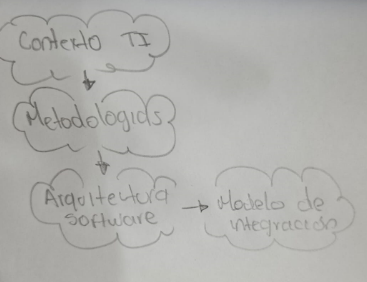 Contexto TI
Metodologias
Arquitectura
software
Modelo de
integración